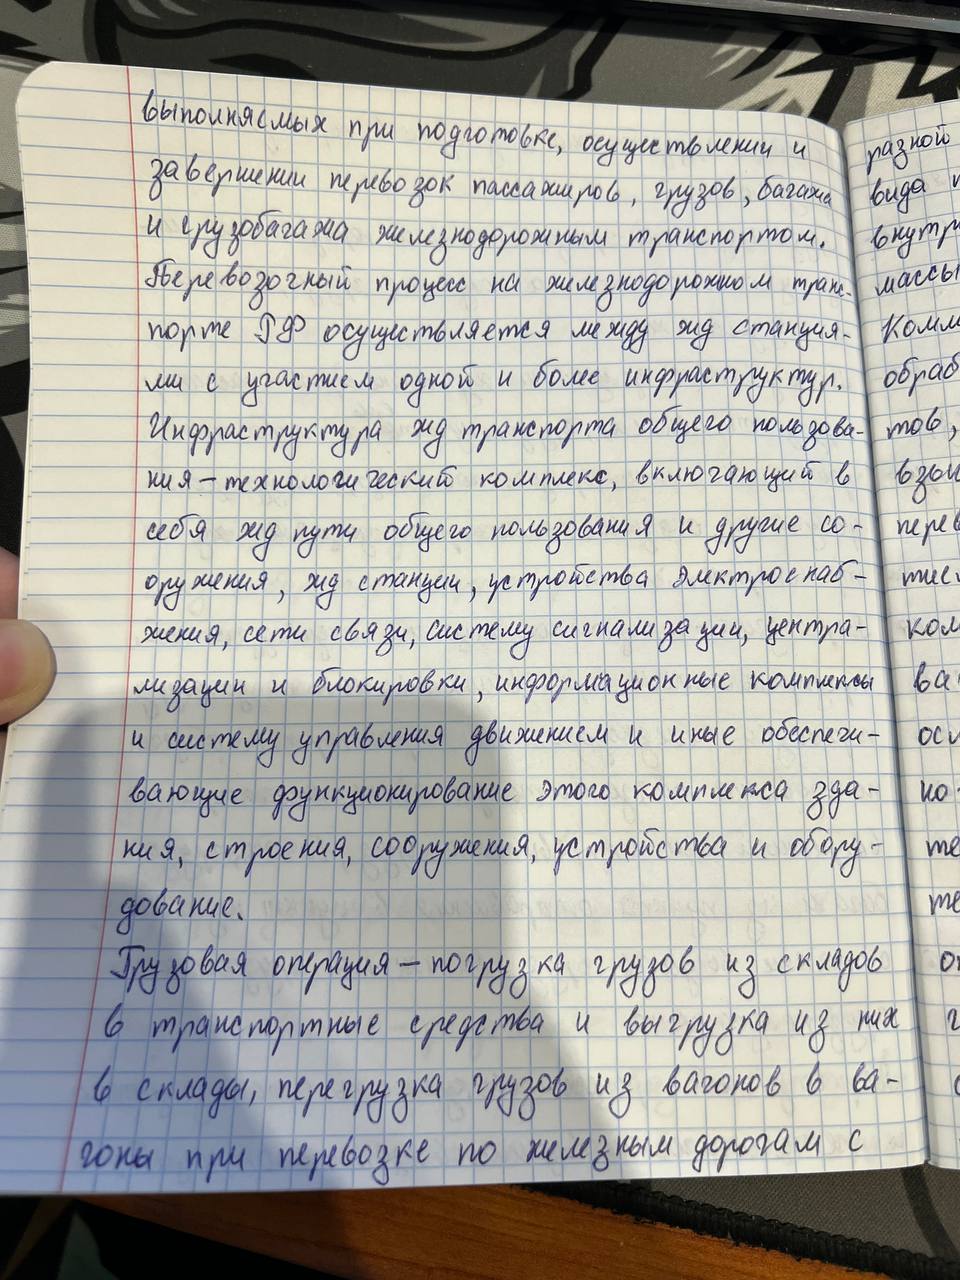 выполняемых при подготовке, осуществлении и
завершении перевозок пассажиров, грузов, багажа
и грузобагажа железнодорожным транспортом.
Перевозочный процесс на железнодорожном транс-
порте РФ осуществляется между жд станция-
ми с участием одной и более инфраструктур.
Инфраструктура жд транспорта общего пользова-
ния – технологический комплекс, включающий в
себя жд пути общего пользования и другие со-
оружения, жд станции, устройства электроснаб-
жения, сети связи, систему сигнализации, центра-
лизации и блокировки, информационные комплексы
и систему управления движением и иные обеспечи-
вающие функционирование этого комплекса зда-
ния, строения, сооружения, устройства и обору-
дование.
Грузовая операция – погрузка грузов из складов
в транспортные средства и выгрузка из них
в склады, перегрузка грузов из вагонов в ва-
гоны при перевозке по железным дорогам с
разной
вида
внутр
массы
Комм
обраб
тов,
взаи
перев
тис
ком
ва
осл
но-
те
те